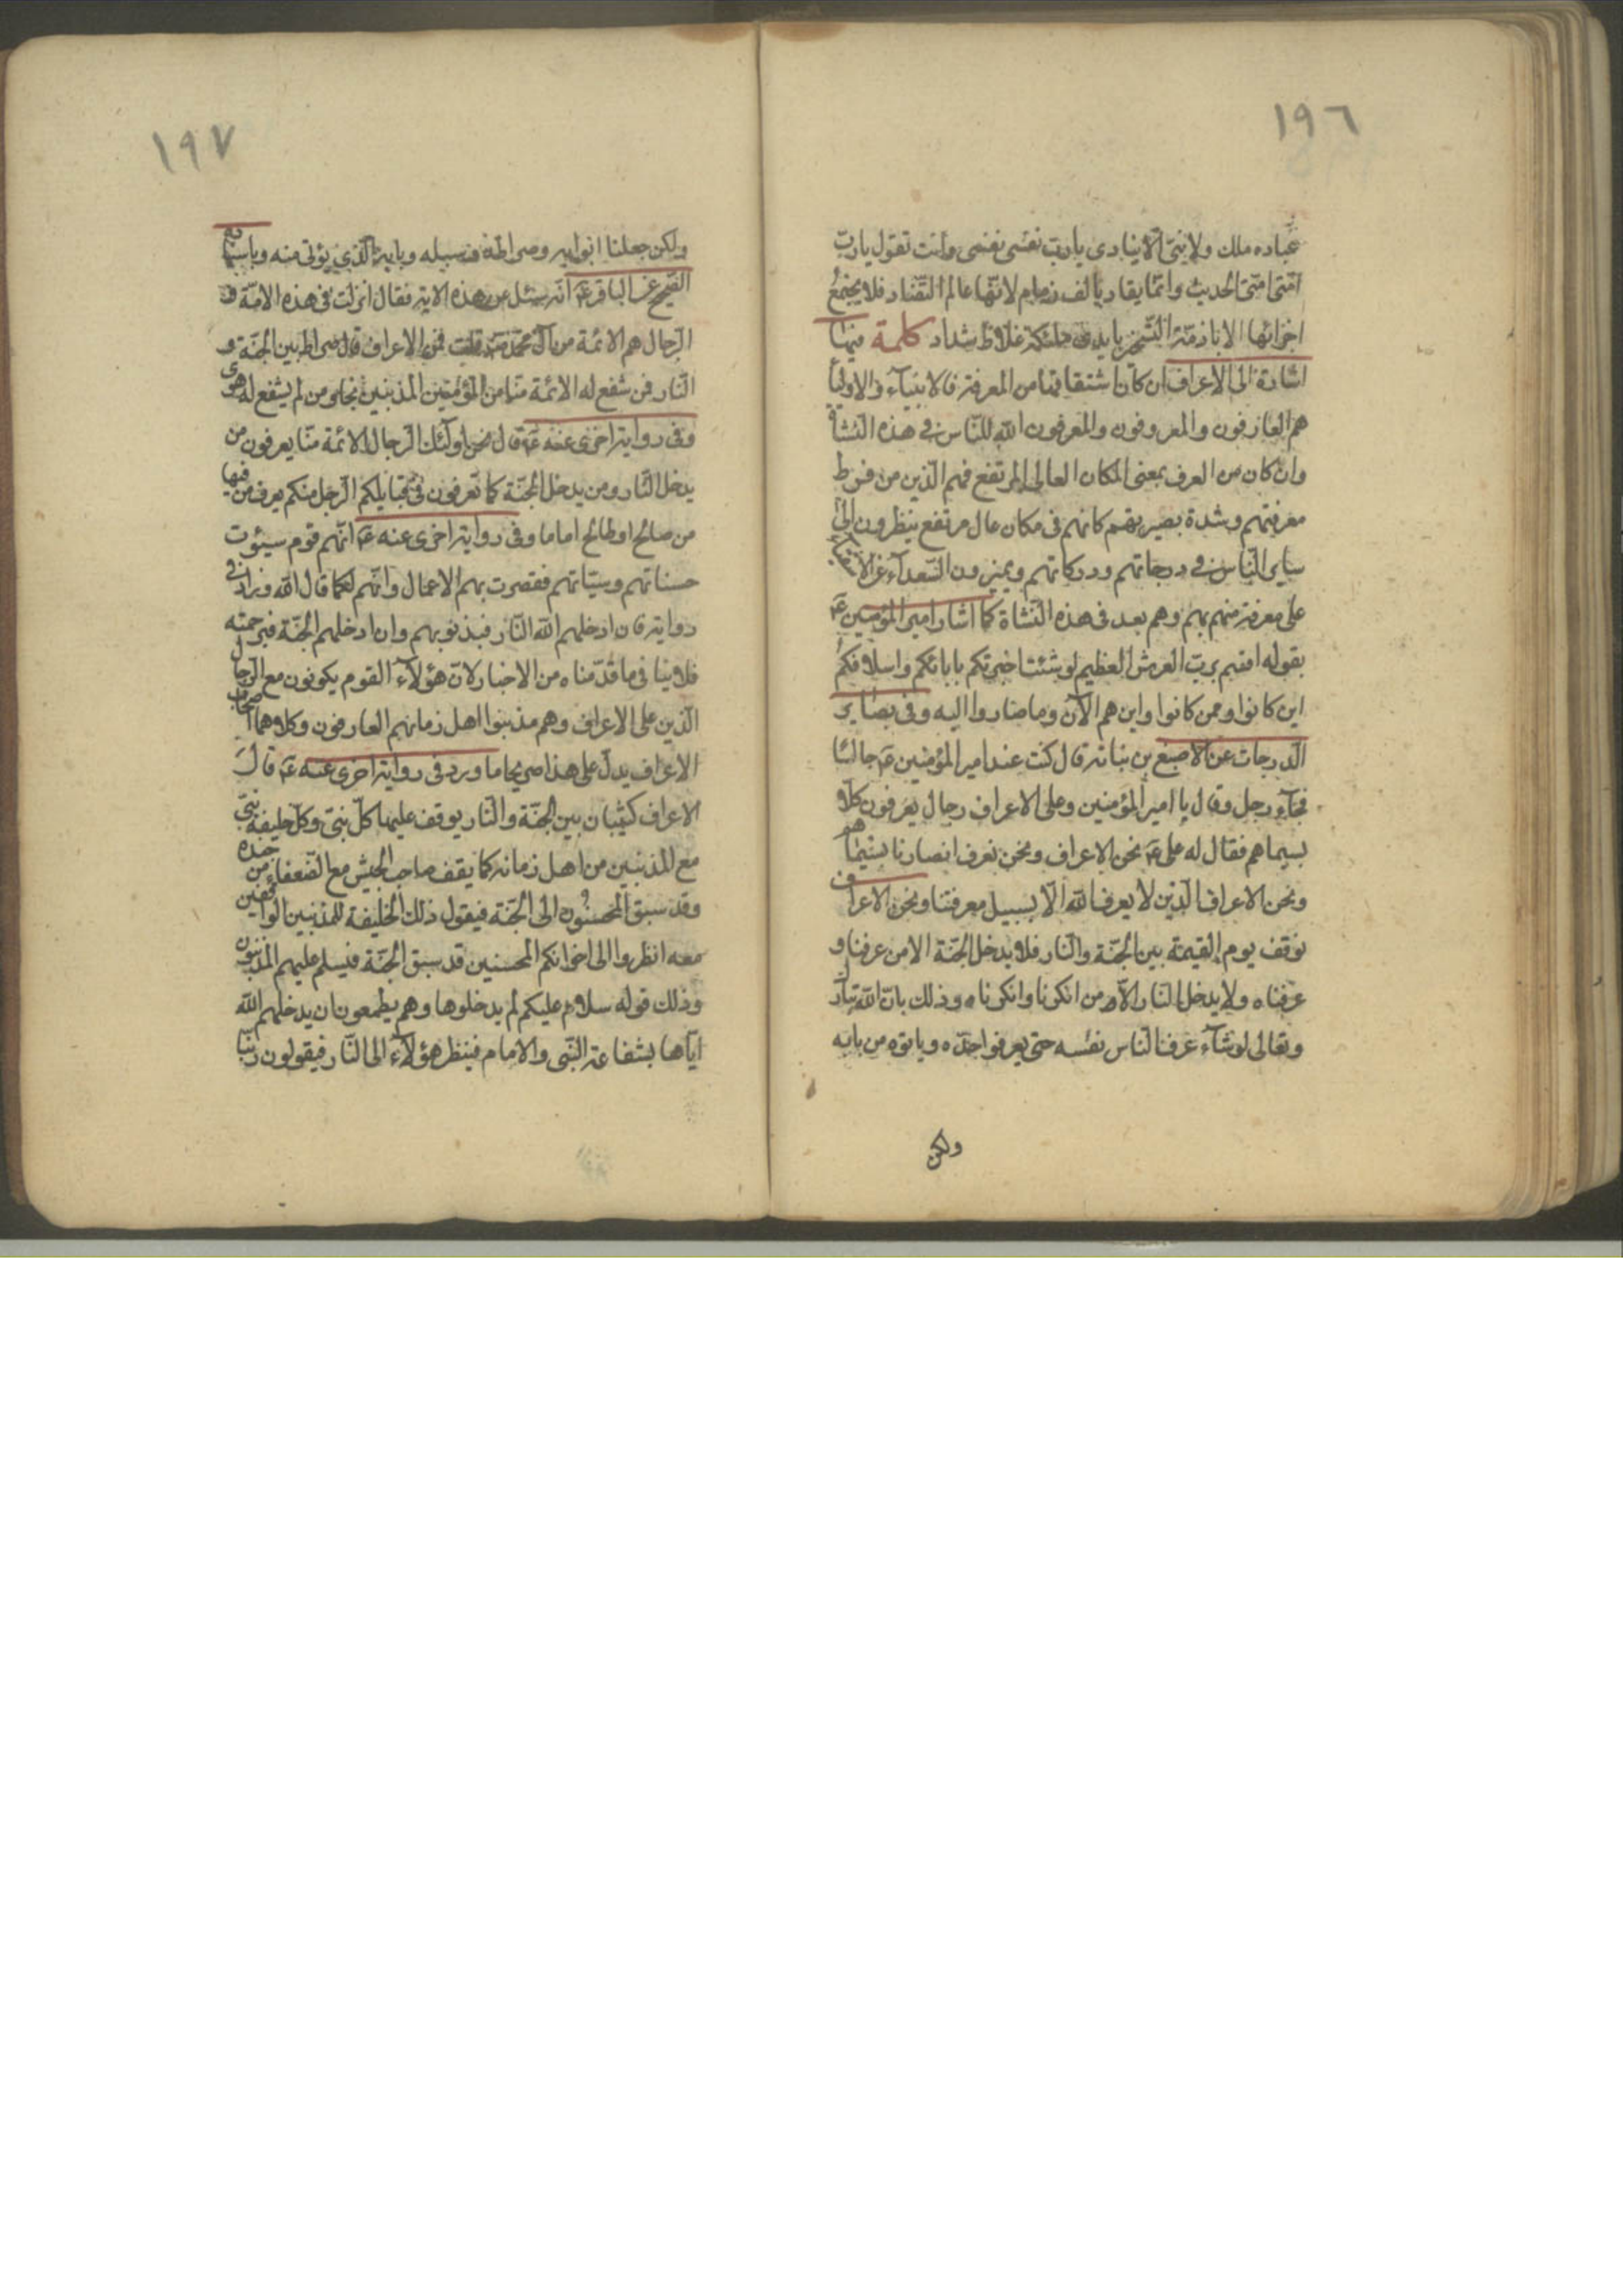 ١٩٦
عباده ملك ولا نبيّ الّا ينادى يا ربّ نفسى نفسى وانت تقول يا ربّ
امّتى امّتى الحديث وانّما يقاد بالف زمام لانّها عالم التّضاد فلا يجتمع
اجزائها الا بازمّة التسخير بايدى ملئكة غلاظ شداد كلمة فيها
اشارة الى الاعراف ان كان اشتقاقها من المعرفة فالانبياء والاوليا
هم العارفون والمعروفون والمعرفون الله للنّاس فى هذه النّشاة
وان كان من العرف بمعنى المكان العالى المرتفع فهم الّذين من فرط
معرفتهم وشدة بصيرتهم كانهم فى مكان عال مرتفع ينظرون الى
ساير النّاس فى درجاتهم ودركاتهم ويميزون السّعداء عن الاشقياء
على معرفة منهم بهم وهم بعد فى هذه النّشاة كما اشار امير المؤمنين ع
بقوله اقسم بربّ العرش العظيم لو شئت اخبرتكم بابائكم واسلافكم
اين كانوا وممن كانوا واين هم الآن وما صاروا اليه وفى بصاير
الدّرجات عن الاصبغ بن نباته قال كنت عند امير المؤمنين ع جالسًا
فجاء رجل وقال يا امير المؤمنين وعلى الاعراف رجال يعرفون كلّا
بسيماهم فقال له على ع نحن الاعراف ونحن نعرف انصارنا بسيماهم
ونحن الاعراف الّذين لا يعرف الله الّا بسبيل معرفتنا ونحن الاعراف
نوقف يوم القيمة بين الجنّة والنّار فلا يدخل الجنّة الا من عرفنا و
عرفناه ولا يدخل النّار الّا من انكرنا وانكرناه وذلك بانّ الله تبارك
وتعالى لو شاء عرف النّاس نفسه حتى يعرفوا حدّه وياتوه من بابه
ولكن
١٩٧
ولكن جعلنا ابوابه وصراطه وسبيله وبابه الّذى يؤتى منه وباسناده
الصّحيح عن الباقر ع انّه سئل عن هذه الاية فقال انزلت فى هذه الامّة و
الرّجال هم الائمّة من آل محمّد قلت فمن الاعراف قال صراط بين الجنّة و
النّار فمن شفع له الائمة منّا من المؤمنين المذنبين نجا ومن لم يشفع له هوى
وفى رواية اخرى عنه ع قال نحن اولئك الرّجال الائمّة منّا يعرفون من
يدخل النّار ومن يدخل الجنّة كما تعرفون فى قبايلكم الرّجل منكم يعرف من فيها
من صالح او طالح اما ما وفى رواية اخرى عنه ع انّهم قوم سيئوت
حسناتهم وسيّئاتهم فقصرت بهم الاعمال وانّهم لكما قال الله وزاد فى
رواية فان ادخلهم الله النّار فبذنوبهم وان ادخلهم الجنّة فبرحمته
فلا ينافى ما قدّمناه من الاخبار لانّ هؤلاء القوم يكونون مع الرّجال
الّذين على الاعراف وهم مذنبوا اهل زمانهم العارفون وكلاهما اصحاب
الاعراف يدلّ على هذا صريحا ما ورد فى رواية اخرى عنه ع قال
الاعراف كثبان بين الجنّة والنّار يوقف عليها كلّ نبىّ وكلّ خليفة نبىّ
مع المذنبين من اهل زمانه كما يقف صاحب الجيش مع الضعفاء من جنده
وقد سبق المحسنون الى الجنّة فيقول ذلك الخليفة للمذنبين الواقفين
معه انظروا الى اخوانكم المحسنين قد سبق الجنّة فيسلم عليهم المذنبون
وذلك قوله سلام عليكم لم يدخلوها وهم يطمعون ان يدخلهم الله
ايّاها بشفاعة النّبى والامام فينظر هؤلاء الى النّار فيقولون ربّنا